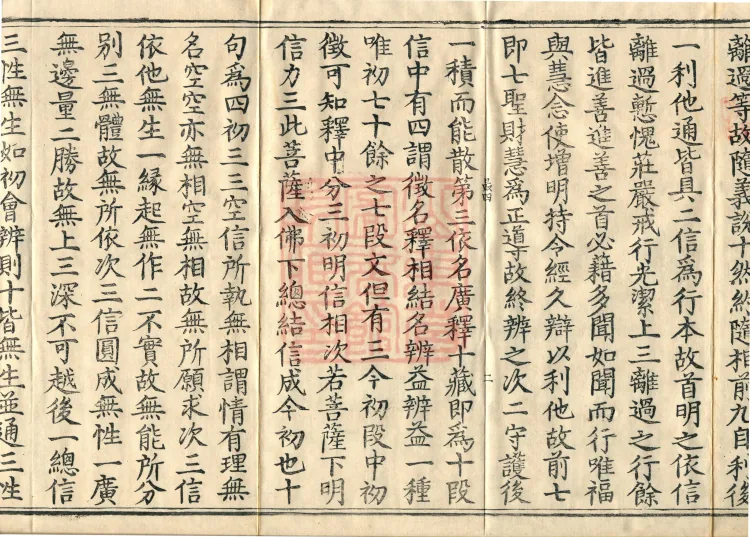 離過等故隨義說十然終隨相前九自利後
一利他通皆具二信為行本故首明之依信
離過慙愧莊嚴戒行光潔上三離過之行餘
皆進善進善之首必藉多聞如聞而行唯福
與慧念使增明持令經久辯以利他故前七
即七聖財慧為正導故終辨之次二守護後
一積而能散第三依名廣釋十藏即為十段
信中有四謂徵名釋相結名辨益辨益一種
唯初七十餘之七段文但有三今初段中初
徵可知釋中分三初明信相次若菩薩下明
信力三此菩薩入佛下總結信成今初也十
句為四初三三空信所執無相謂情有理無
名空空亦無相空無相故無所願求次三信
依他無生一緣起無作二不實故無能所分
別三無體故無所依次三信圓成無性一廣
無邊量二勝故無上三深不可越後一總信
三性無生如初會辨則十皆無生並通三性